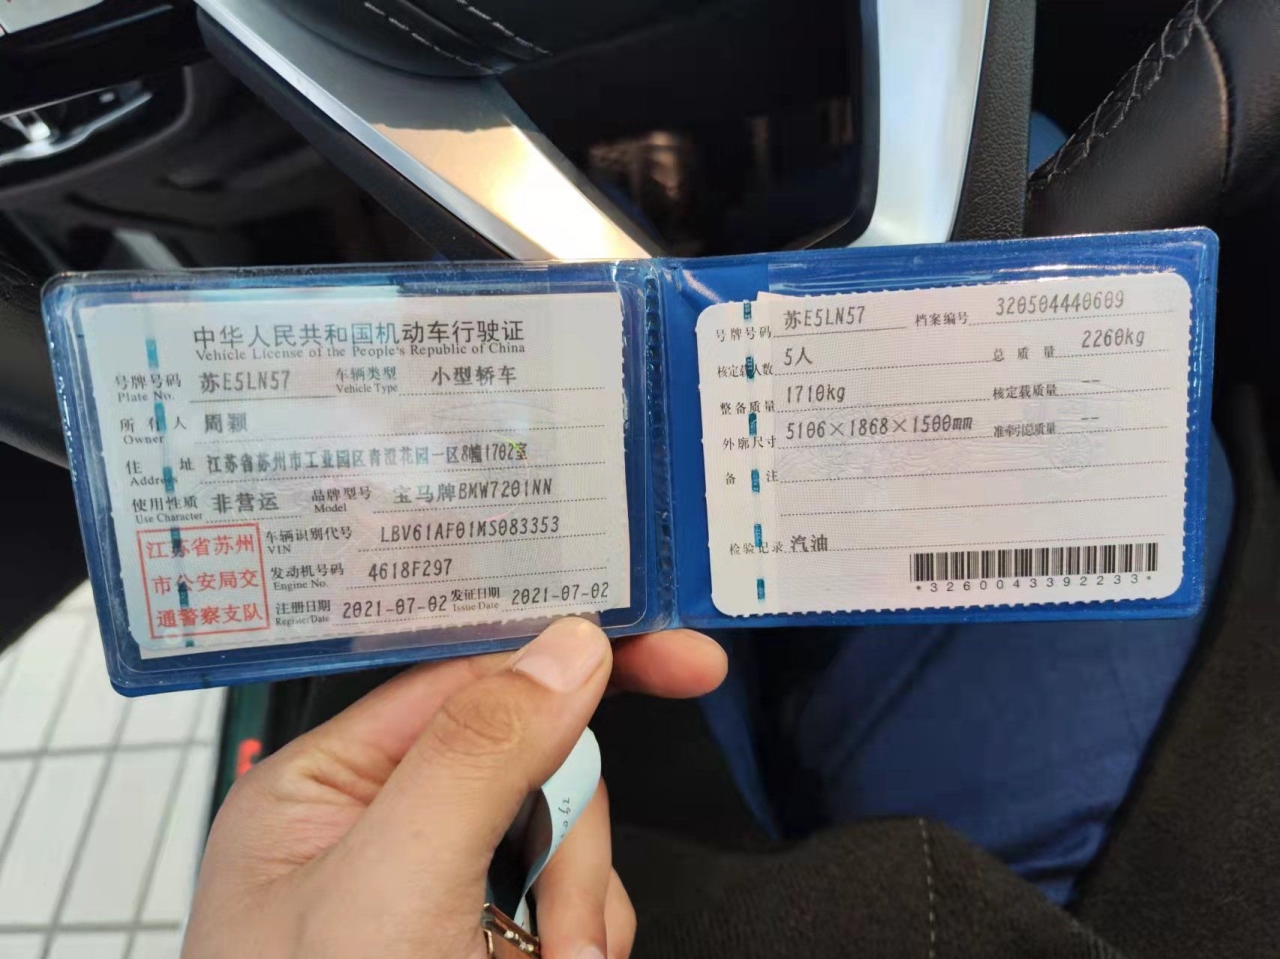 中华人民共和国机动车行驶证
Vehicle License of the People's Republic of China
号牌号码 苏E5LN57 车辆类型 小型轿车
Plate No. Vehicle Type
所有人 周颖
Owner
住址 江苏省苏州市工业园区青澄花园一区8幢1702室
Address
使用性质 非营运 品牌型号 宝马牌BMW7201NN
Use Character Model
江苏省苏州
市公安局交
通警察支队
车辆识别代号 LBV61AF01MS083353
VIN
发动机号码 4618F297
Engine No.
注册日期 2021-07-02 发证日期 2021-07-02
Register Date Issue Date
号牌号码 苏E5LN57 档案编号 320504440609
核定载人数 5人 总质量 2260kg
整备质量 1710kg 核定载质量 --
外廓尺寸 5106×1868×1500mm 准牵引总质量 --
备注
检验记录 汽油
*3260043392233*